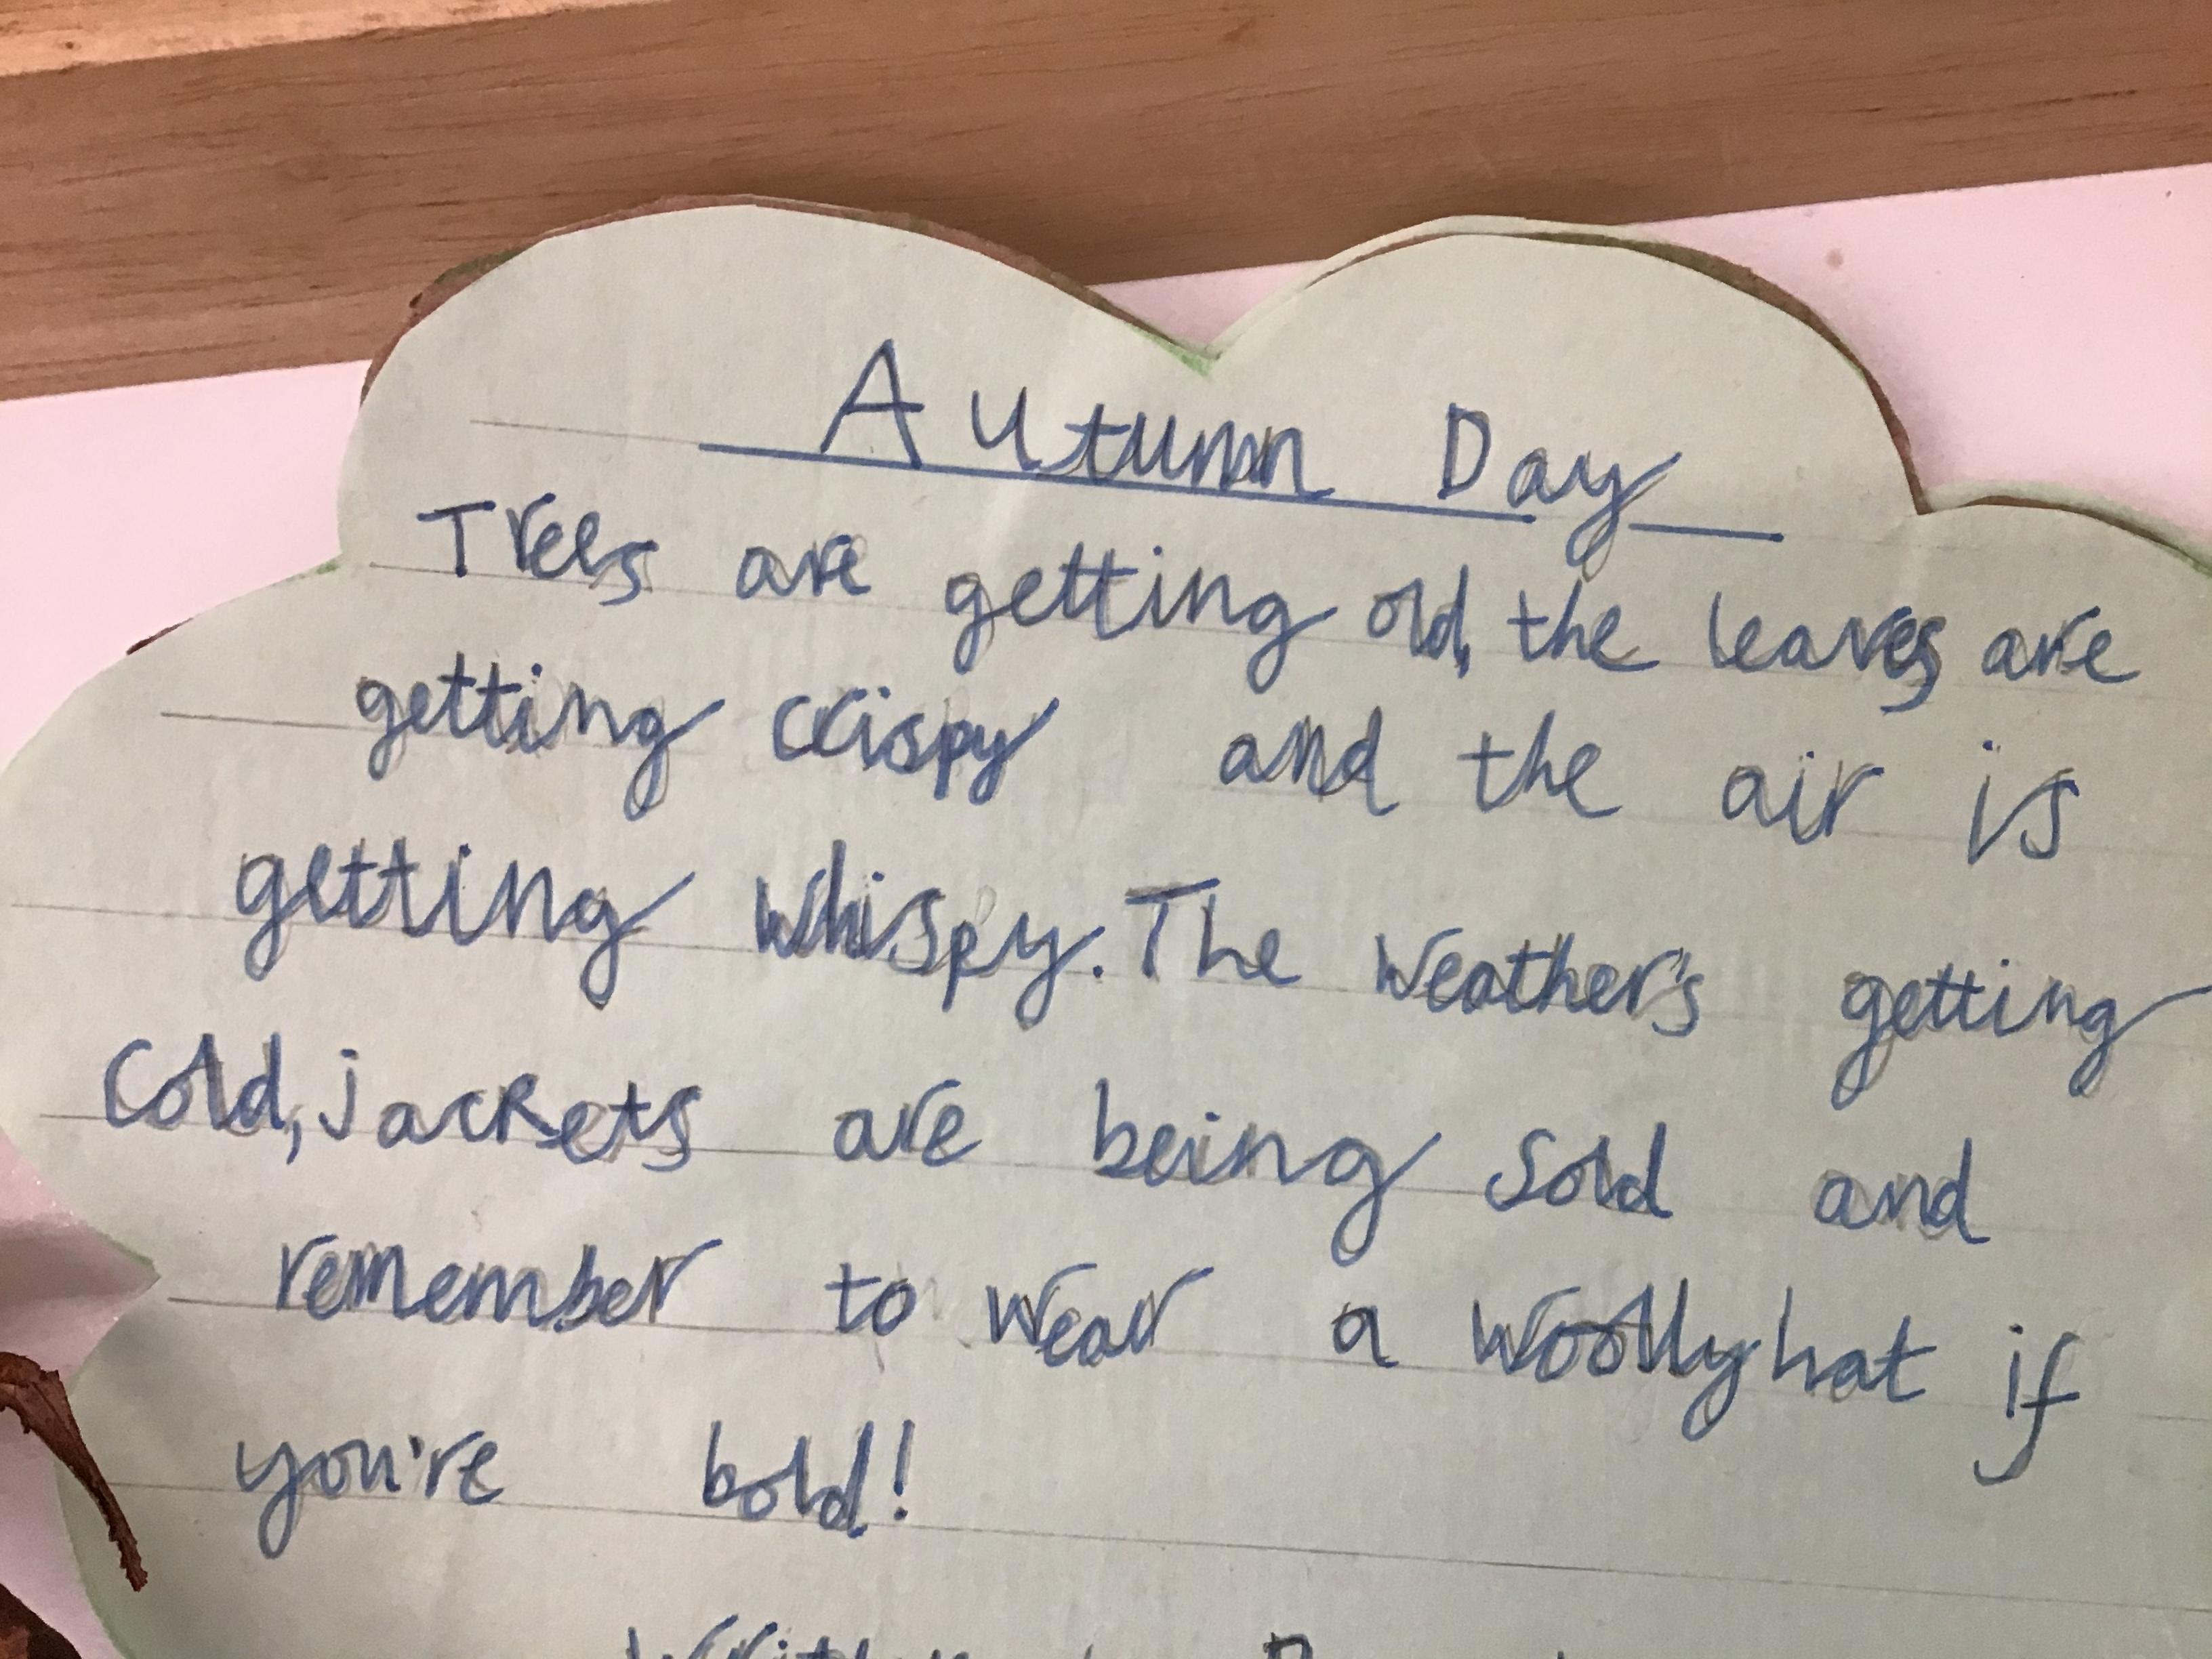 Autumn Day
Trees are getting old, the leaves are
getting crispy and the air is
getting whispy. The weather's getting
cold, jackets are being sold and
remember to wear a woolly hat if
you're bold!